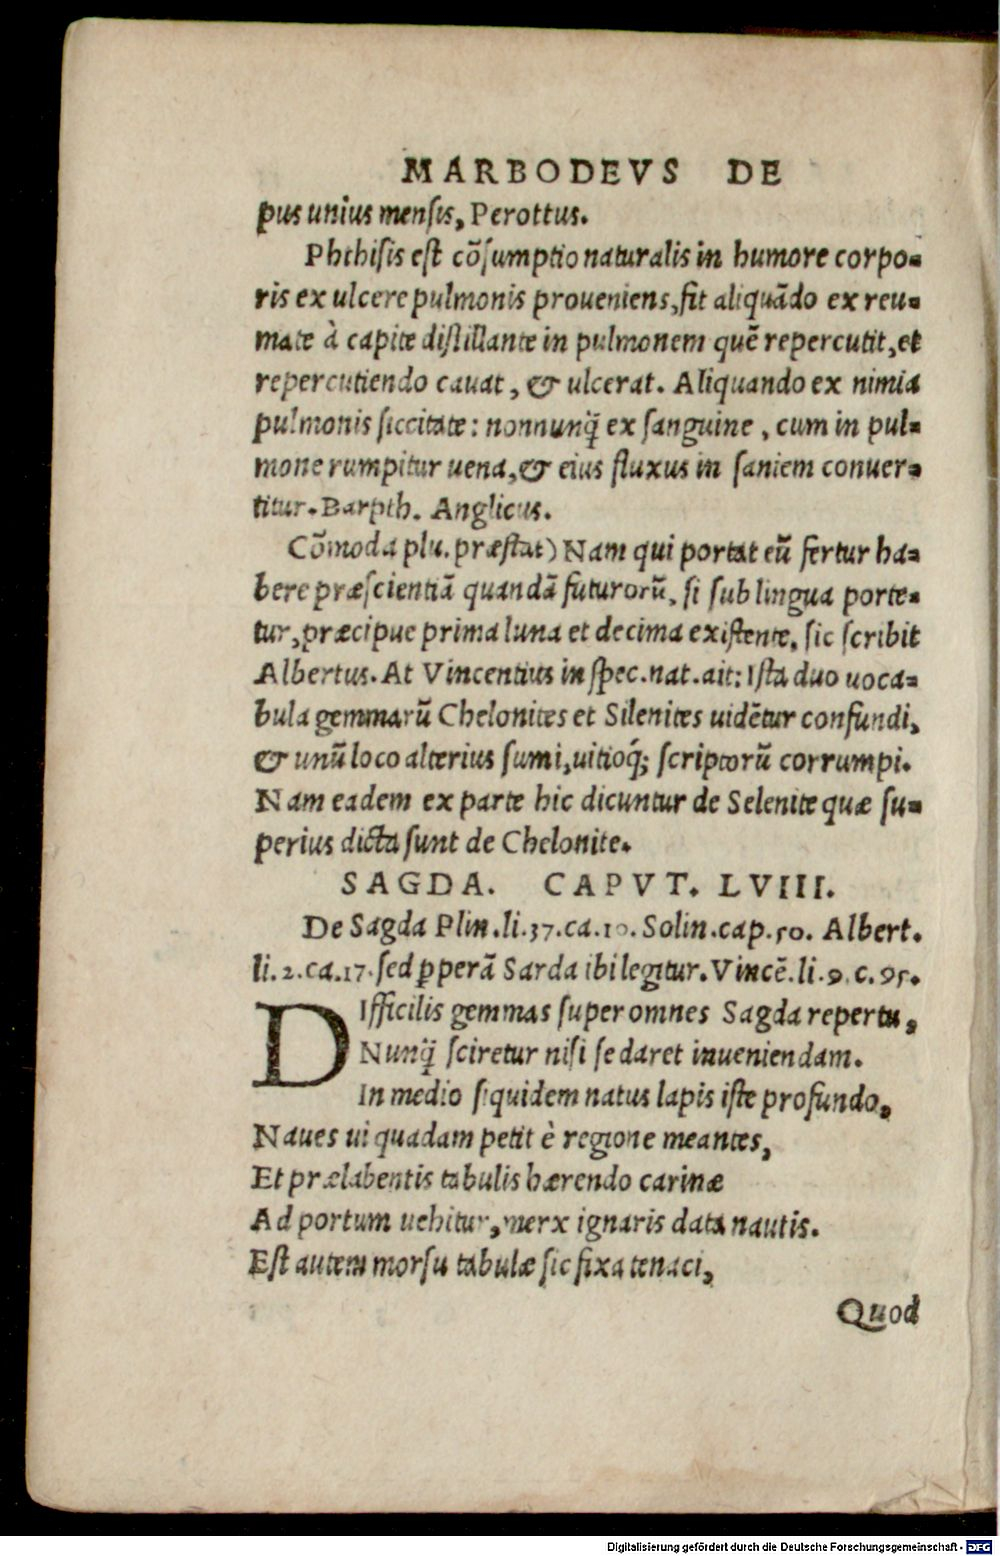 MARBODEVS DE
pus unius mensis, Perottus.
Phthisis est cõsumptio naturalis in humore corpo-
ris ex ulcere pulmonis proueniens, fit aliquãdo ex reu-
mate à capite distillante in pulmonem quẽ repercutit, et
repercutiendo cauat, & ulcerat. Aliquando ex nimia
pulmonis siccitate: nonnunq̃ ex sanguine, cum in pul-
mone rumpitur uena, & eius fluxus in saniem conuer-
titur. Barpth. Anglicus.
Cõmoda plu. præstat) Nam qui portat eũ fertur ha-
bere præscientiã quandã futurorũ, si sub lingua porte-
tur, præcipue prima luna et decima existente, sic scribit
Albertus. At Vincentius in spec. nat. ait: Ista duo uoca-
bula gemmarũ Chelonites et Silenites uidẽtur confundi,
& unũ loco alterius sumi, uitioq́; scriptorũ corrumpi.
Nam eadem ex parte hic dicuntur de Selenite quæ su-
perius dicta sunt de Chelonite.
SAGDA. CAPVT. LVIII.
De Sagda Plin. li. 37. ca. 10. Solin. cap. 50. Albert.
li. 2. ca. 17. sed ꝑperã Sarda ibi legitur. Vincẽ. li. 9. c. 95.
DIfficilis gemmas super omnes Sagda repertu,
Nunq̃ sciretur nisi se daret inueniendam.
In medio siquidem natus lapis iste profundo,
Naues ui quadam petit è regione meantes,
Et prælabentis tabulis hærendo carinæ
Ad portum uehitur, merx ignaris data nautis.
Est autem morsu tabulæ sic fixa tenaci,
Quod
Digitalisierung gefördert durch die Deutsche Forschungsgemeinschaft - DFG